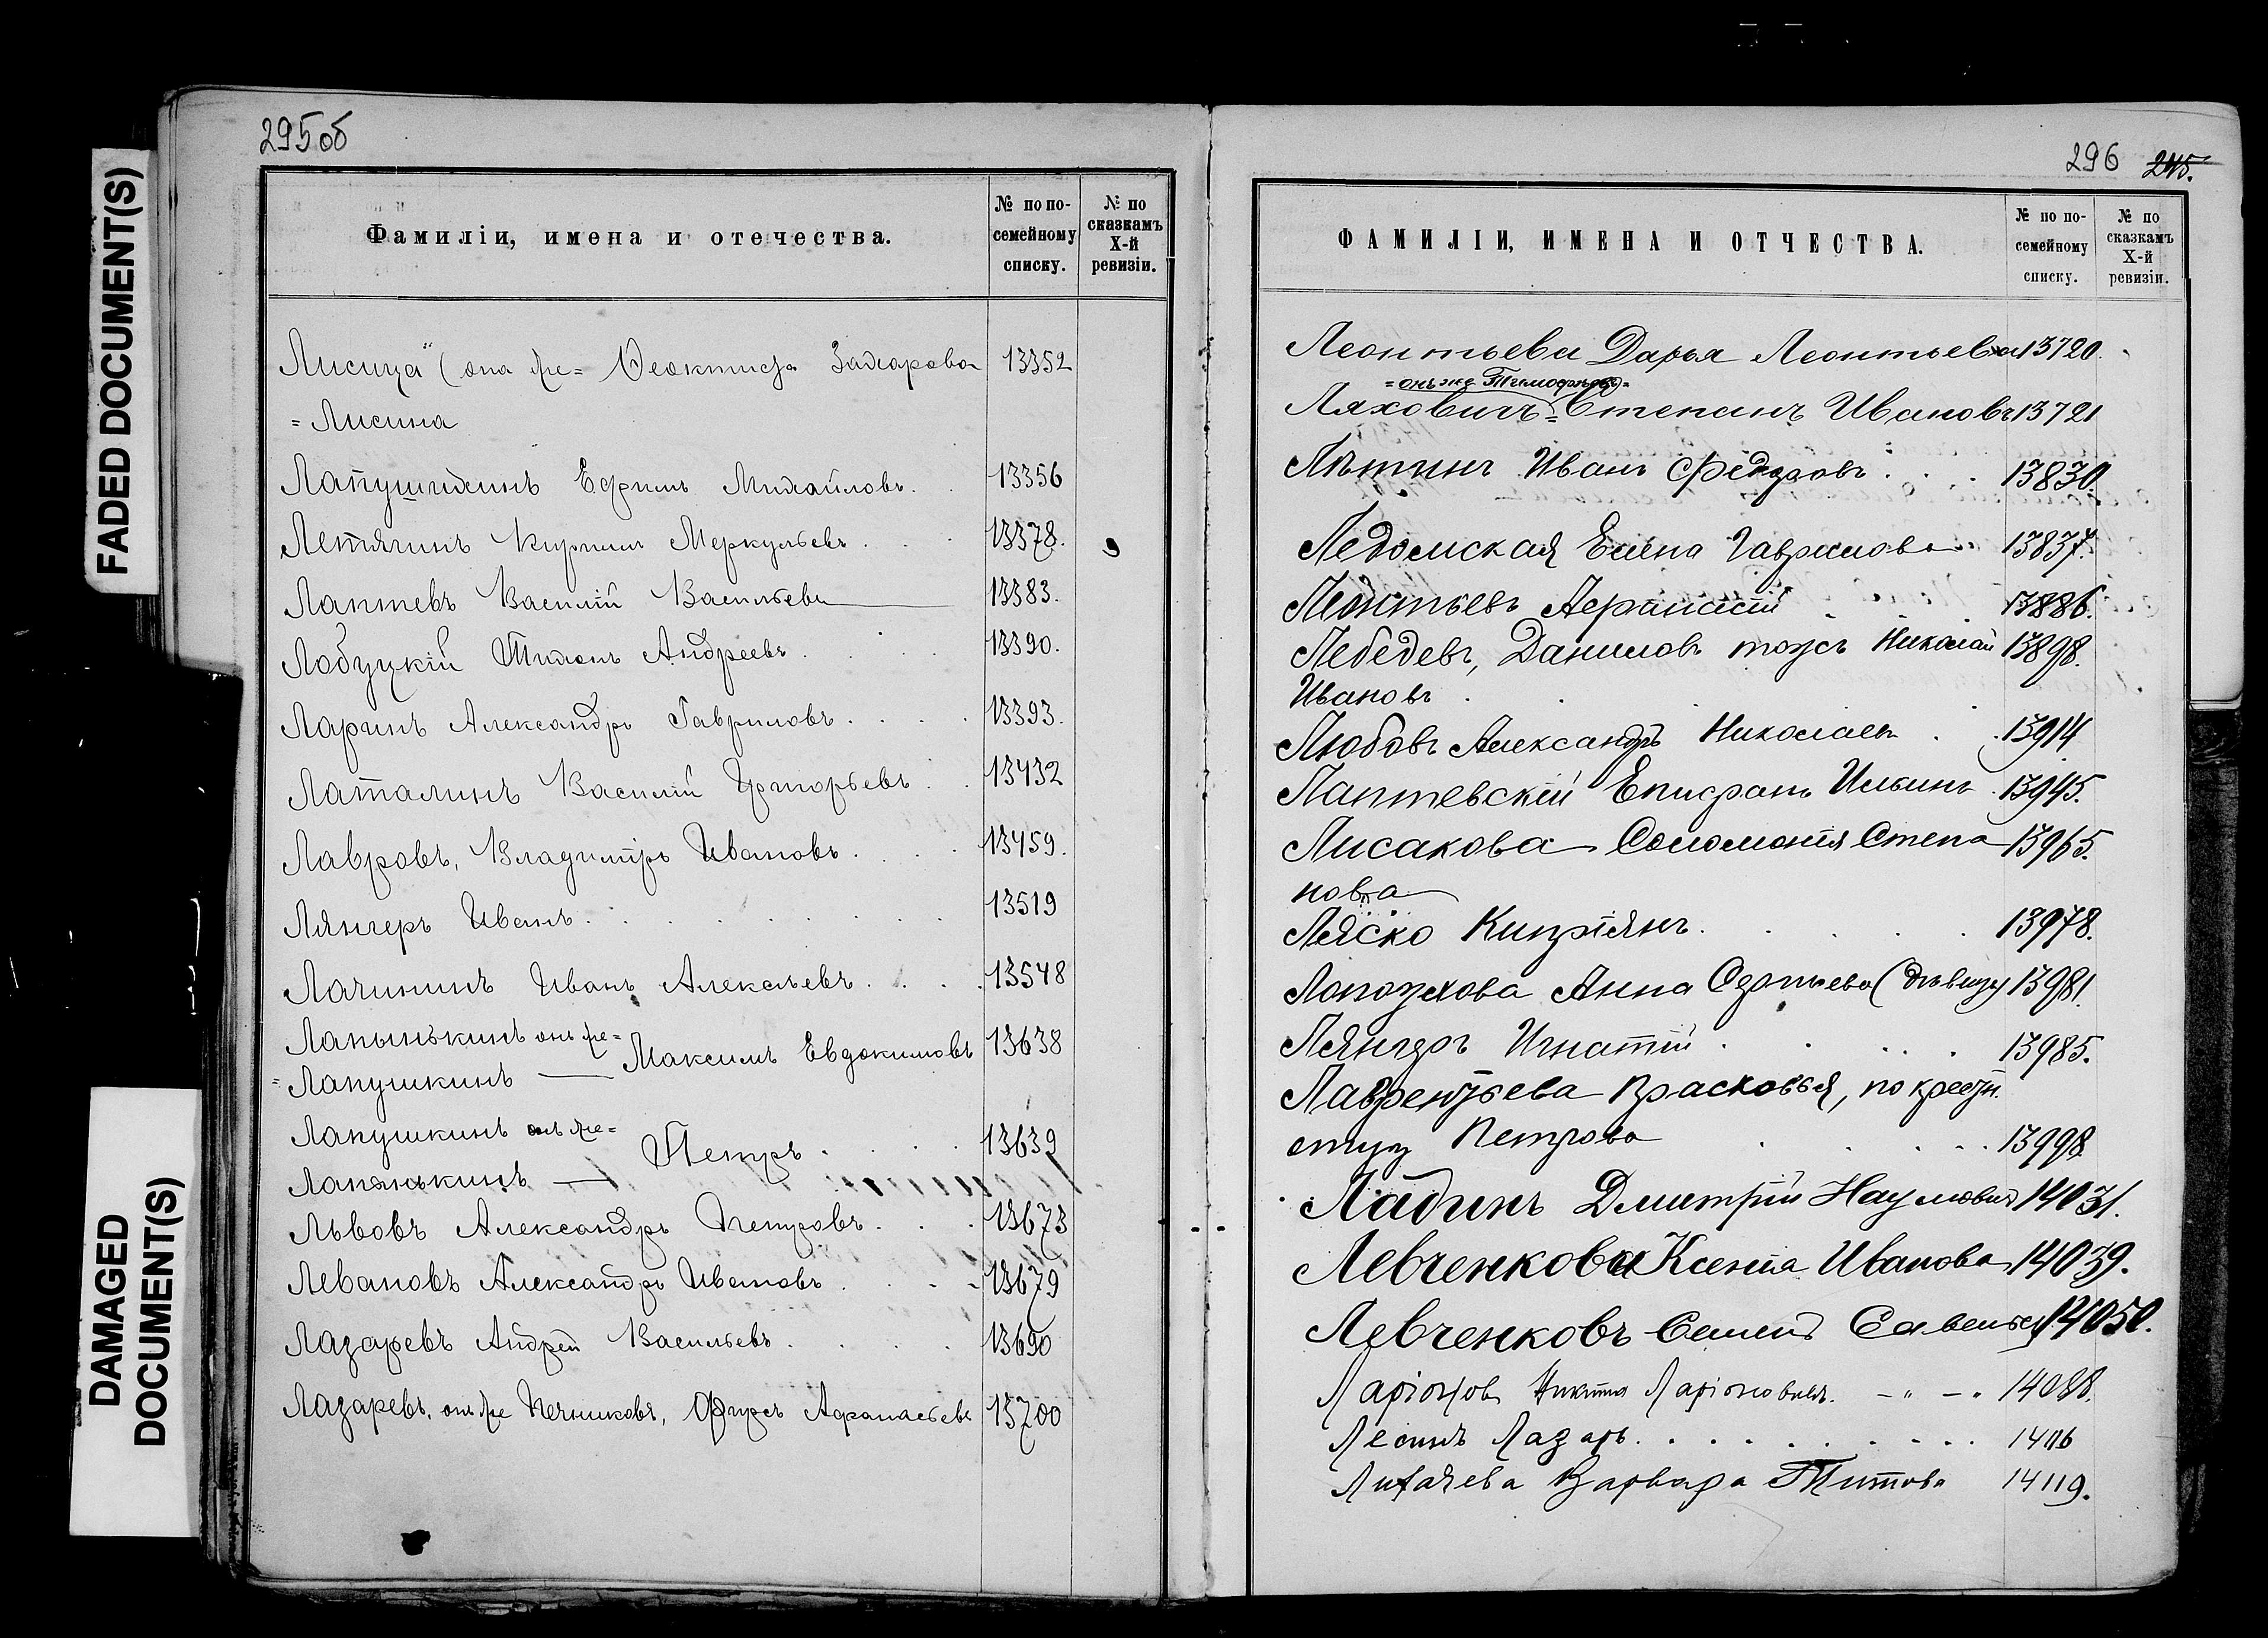 FADED DOCUMENT(S)
DAMAGED
DOCUMENT(S)
295об
Фамиліи, имена и отечества.
№ по по-
семейному
списку.
№ по
сказкамъ
X-й
ревизіи.
Лисица (она же= Феоктиста Захарова 13352
=Лисина
Лапушихинъ Ефимъ Михайловъ. 13356
Летягинъ Кириллъ Меркульевъ 13378.
Лаптевъ Василій Васильевъ 13383.
Лобуцкій Тихонъ Андреевъ 13390.
Ларинъ Александръ Гавриловъ 13393.
Латалинъ Василій Григорьевъ 13432
Лавровъ, Владиміръ Ивановъ 13459.
Лянгеръ Иванъ 13519
Лачининъ Иванъ Алексѣевъ 13548
Лапынькинъ онъ же=
Максимъ Евдокимовъ 13638
=Лапушкинъ —
Лапушкинъ онъ же=
Петръ 13639
Лапынькинъ —
Львовъ Александръ Петровъ 13673
Левановъ Александръ Ивановъ 13679
Лазаревъ Андрей Васильевъ 13690
Лазаревъ, онъ же Печниковъ, Фирсъ Афанасьевъ 13700
296 245.
ФАМИЛІИ, ИМЕНА И ОТЧЕСТВА.
№ по по-
семейному
списку.
№ по
сказкамъ
X-й
ревизіи.
Леонтьева Дарья Леонтьева 13720.
=онъ же Тимофѣевъ=
Ляховичъ= Степанъ Ивановъ 13721
Лѣтинъ Иванъ Федоровъ 13830.
Ледомская Елена Гаврилова 13837.
Леонтьевъ Афанасій 13886.
Лебедевъ, Даниловъ тожъ Николай 13898.
Ивановъ
Любовь Александръ Николаевъ 13914
Лаптевскій Епифанъ Ильинъ 13945.
Лисакова Соломонія Степа 13965.
нова
Ляско Кипріянъ 13978.
Лопухова Анна Сергѣева (дѣвица) 13981.
Лянгеръ Игнатій 13985.
Лаврентьева Прасковья, по крестн.
отцу Петрова 13998
Ладинъ Дмитрій Наумовичъ 14031.
Левченкова Ксенія Иванова 14039.
Левченковъ Семенъ Савельевъ 14050.
Ларіоновъ Никита Ларіоновичъ. 14088.
Лесинъ Лазарь 14116
Лихачева Варвара Титова 14119.